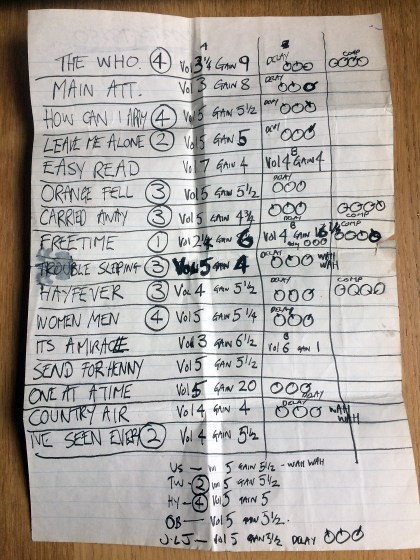 A B
THE WHO. ④ Vol 3¼ GAIN 9 DELAY COMP
MAIN ATT. Vol 3 GAIN 8 DELAY
HOW CAN I ④ Vol 5 GAIN 5½ DELAY
LEAVE ME ALONE ② Vol 5 GAIN 5 DELAY
EASY READ Vol 7 GAIN 4 B Vol 4 GAIN 4
ORANGE FELL ③ Vol 5 GAIN 5½ DELAY
CARRIED AWAY ③ Vol 5 GAIN 4¾ DELAY COMP
FREETIME ① Vol 2¼ GAIN 6 B Vol 4 GAIN Delay COMP
TROUBLE SLEEPING ③ Vol 5 GAIN 4 DELAY WAH WAH
HAYFEVER ③ Vol 4 GAIN 5½ DELAY COMP
WOMEN MEN ④ Vol 5 GAIN 5¼ DELAY
ITS A MIRACLE Vol 3 GAIN 6½ B Vol 6 GAIN 1
SEND FOR HENNY Vol 5 GAIN 5½
ONE AT A TIME Vol 5 GAIN 20 DELAY
COUNTRY AIR Vol 4 GAIN 4 DELAY WAH WAH
I'VE SEEN EVER ② Vol 4 GAIN 5½
US — Vol 5 GAIN 5½ - WAH WAH
TW — ② Vol 5 GAIN 5½
HY — ④ Vol 5 GAIN 5
OB — Vol 5 GAIN 5½.
J.L.J — Vol 5 GAIN 5½ DELAY